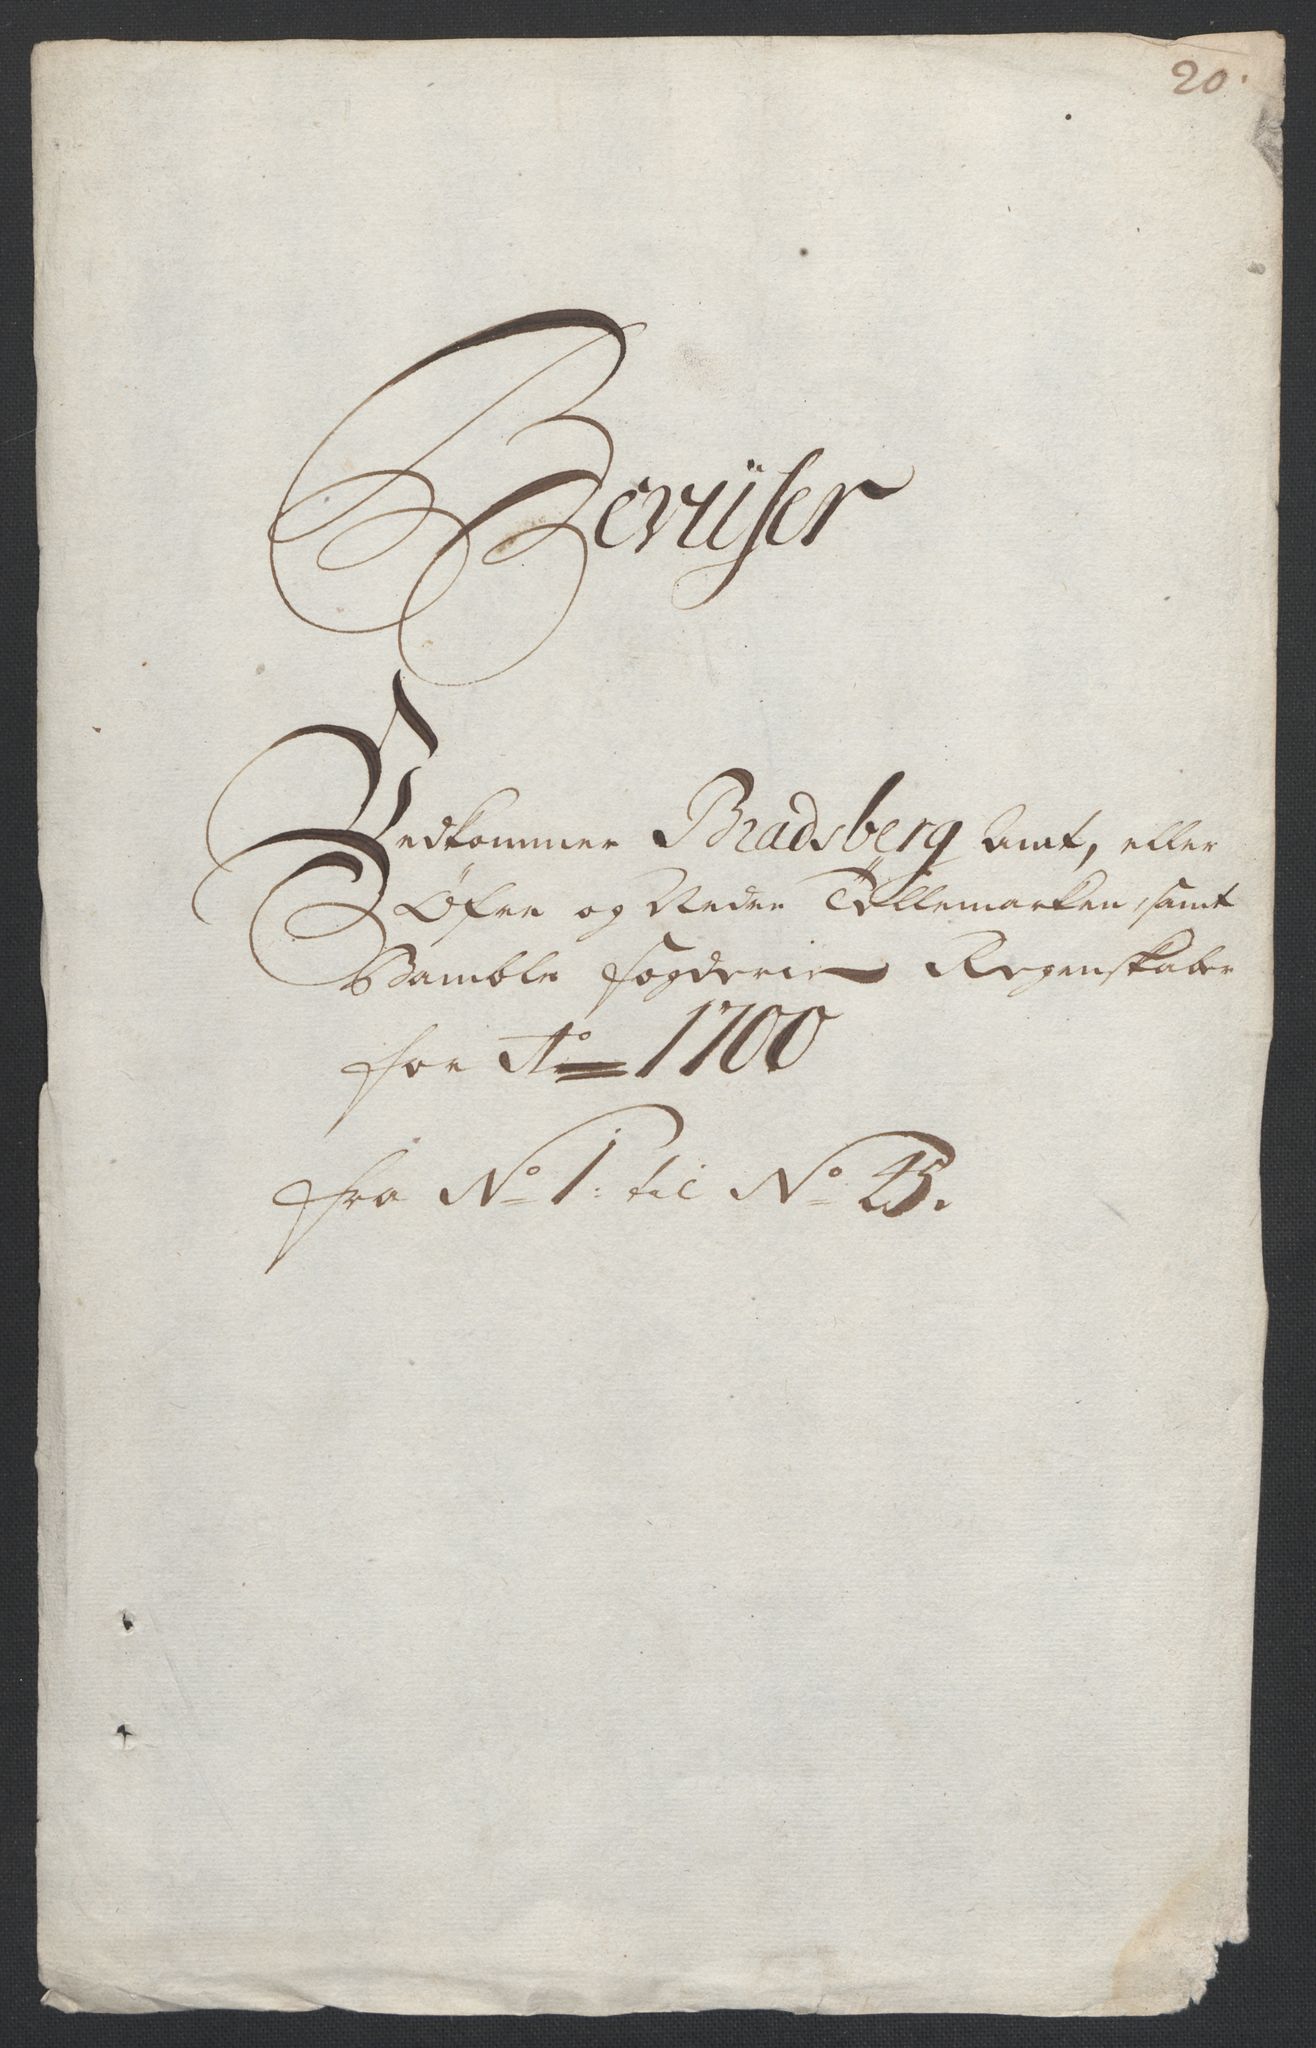 20.
Bevijser
Vedkommer Bradsberg Amt, eller
Øfre og Nedre Tellemarken, samt
Bamble fogderie Regenskaber
for Ao 1700
fra No 1: til No 25.